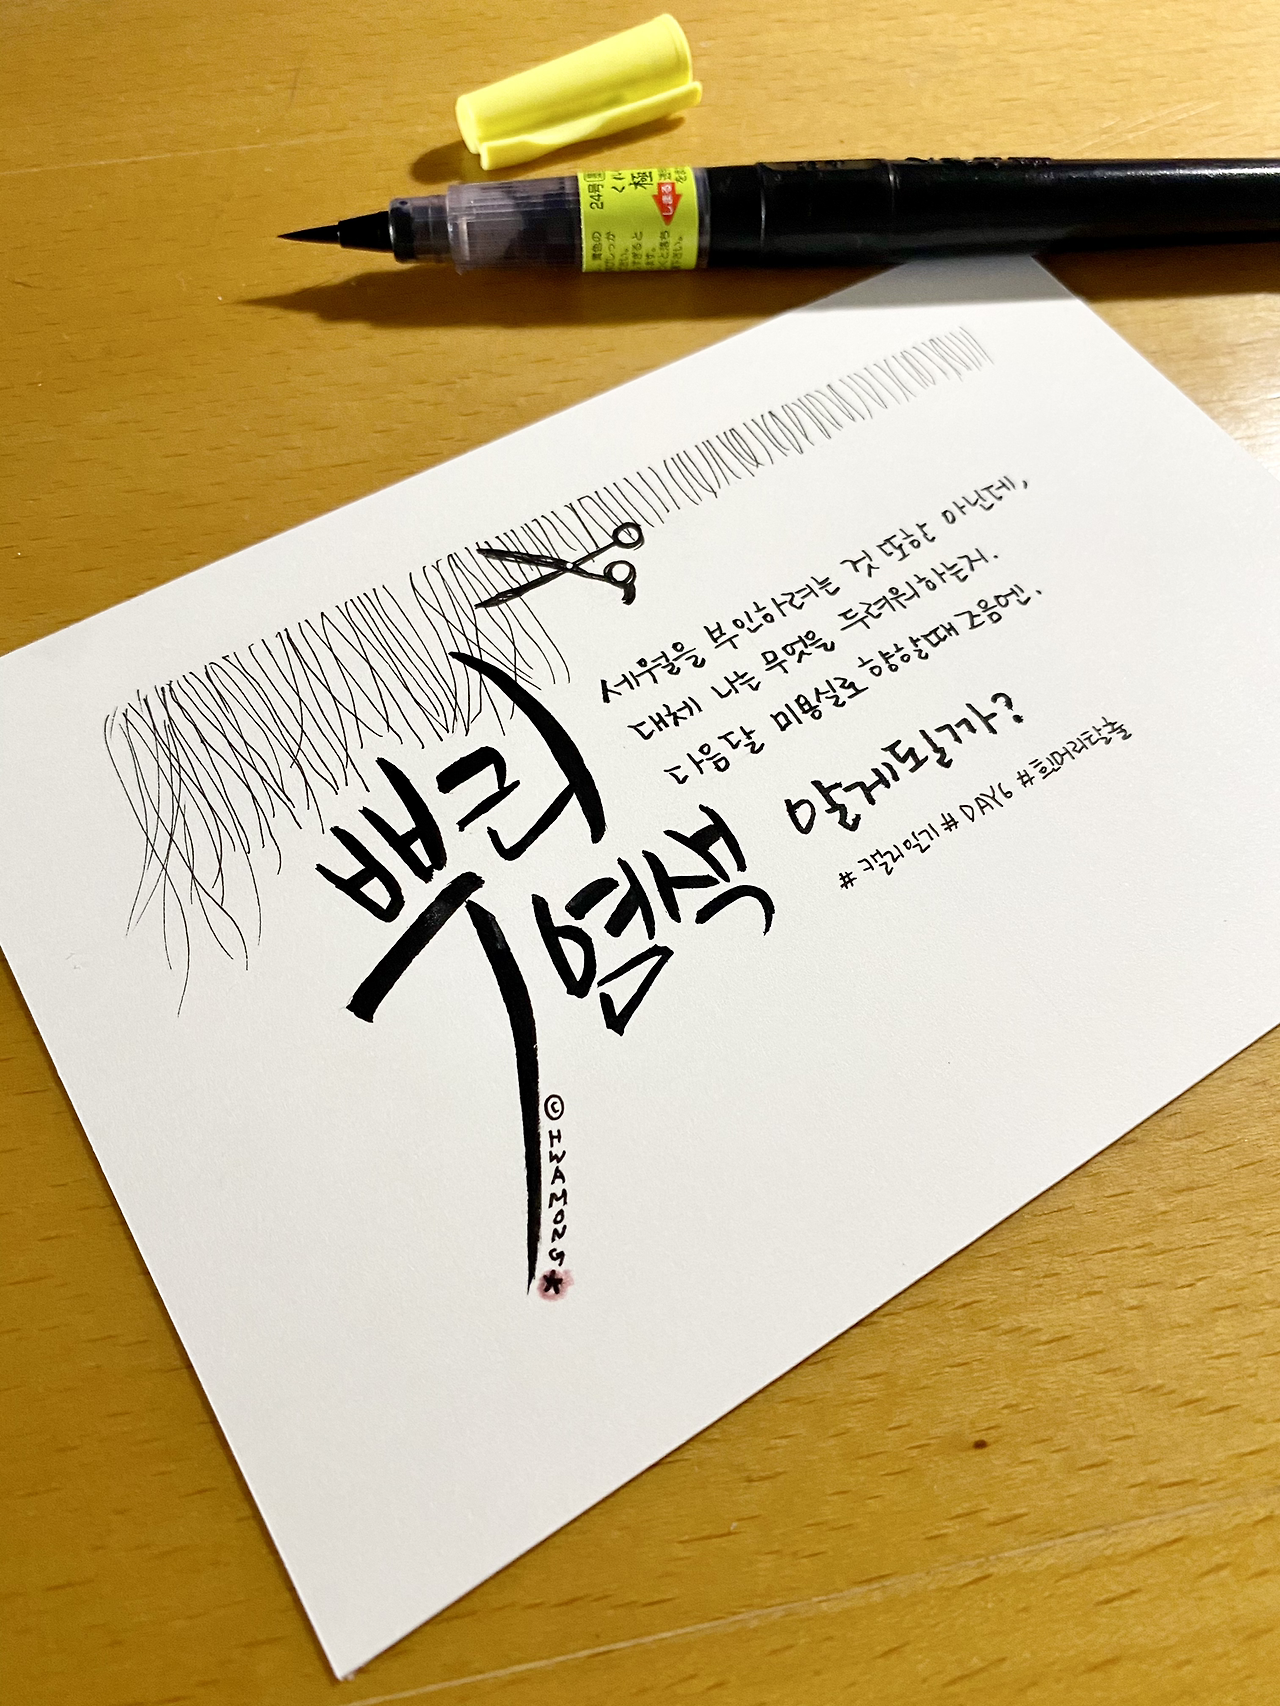 24号
しまる
세월을 부인하려는 것 또한 아닌데,
대체 나는 무엇을 두려워하는지.
다음달 미용실로 향할때 즈음엔.
알게될까?
#캘리일기 #DAY6 #흰머리탈출
뿌리
염색
©HWAMONG